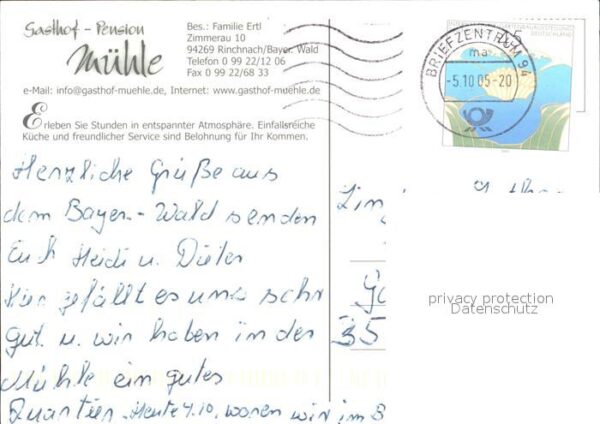 Gasthof - Pension
Mühle
Bes.: Familie Ertl
Zimmerau 10
94269 Rinchnach/Bayer. Wald
Telefon 0 99 22/12 06
Fax 0 99 22/68 33
e-Mail: info@gasthof-muehle.de, Internet: www.gasthof-muehle.de
Erleben Sie Stunden in entspannter Atmosphäre. Einfallsreiche
Küche und freundlicher Service sind Belohnung für Ihr Kommen.
BRIEFZENTRUM 94
ma
-5.10.05-20
DEUTSCHLAND
45
Herzliche Grüße aus
dem Bayer.- Wald senden
Euch Heidi u. Dieter
Hier gefällt es uns sehr
gut. u. wir haben in der
Mühle ein gutes
Quartier. Heute 4.10. waren wir im B
35
privacy protection
Datenschutz